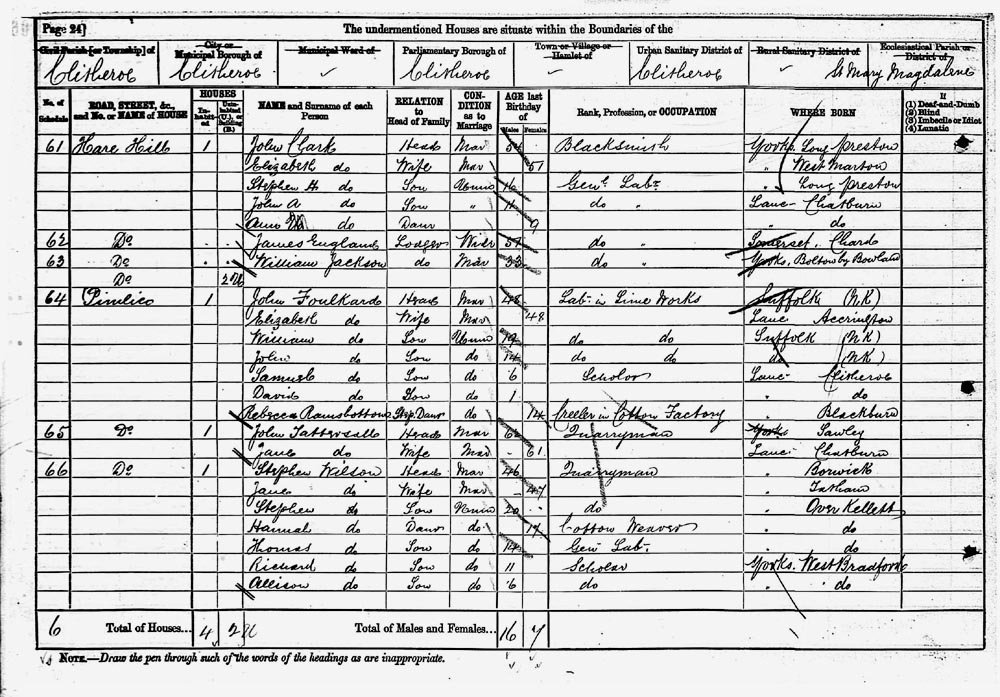 Page 24] The undermentioned Houses are situate within the Boundaries of the
Civil Parish [or Township] of City or Municipal Borough of Municipal Ward of Parliamentary Borough of Town or Village or Hamlet of Urban Sanitary District of Rural Sanitary District of Ecclesiastical Parish or District of
Clitheroe Clitheroe ✓ Clitheroe ✓ Clitheroe ✓ St Mary Magdalene
No. of Schedule ROAD, STREET, &c., and No. or NAME of HOUSE HOUSES Inhabited Uninhabited (U.), or Building (B.) NAME and Surname of each Person RELATION to Head of Family CONDITION as to Marriage AGE last Birthday of Males Females Rank, Profession, or OCCUPATION WHERE BORN If (1) Deaf-and-Dumb (2) Blind (3) Imbecile or Idiot (4) Lunatic
61 Hare Hill 1 John Clark Head Mar Blacksmith Yorks. Long Preston
Elizabeth do Wife Mar 51 " West Marton
Stephen H do Son Unm 16 Genl. Labr " Long Preston
John A do Son " 11 do " Lanc- Chatburn
Ann do Daur 9 " do
62 Do James England Lodger Widr do " Somerset. Chard
63 Do William Jackson do Mar 33 do " Yorks, Bolton by Bowland
Do 2 U
64 Pimlico 1 John Foulkard Head Mar 48 Labr in Lime Works Suffolk (NK)
Elizabeth do Wife Mar 48 Lanc Accrington
William do Son Unm 19 do do Suffolk (NK)
John do Son do 14 do do do (NK)
Samuel do Son do 6 Scholar Lanc- Clitheroe
David do Son do 1 " do
Rebecca Ramsbottom Step Daur do 14 Creeler in Cotton Factory " Blackburn
65 Do 1 John Tattersall Head Mar Quarryman Yorks Sawley
Jane do Wife Mar - 61 Lanc- Chatburn
66 Do 1 Stephen Wilson Head Mar 46 Quarryman " Borwick
Jane do Wife Mar - 47 " Tatham
Stephen do Son Unm 20 do " Over Kellett
Hannah do Daur do 17 Cotton Weaver " do
Thomas do Son do 14 Genl Labr. " do
Richard do Son do 11 Scholar Yorks. West Bradford
Allison do Son do 6 do " do
6 Total of Houses... 4 2 U Total of Males and Females... 16 7
NOTE.—Draw the pen through such of the words of the headings as are inappropriate.